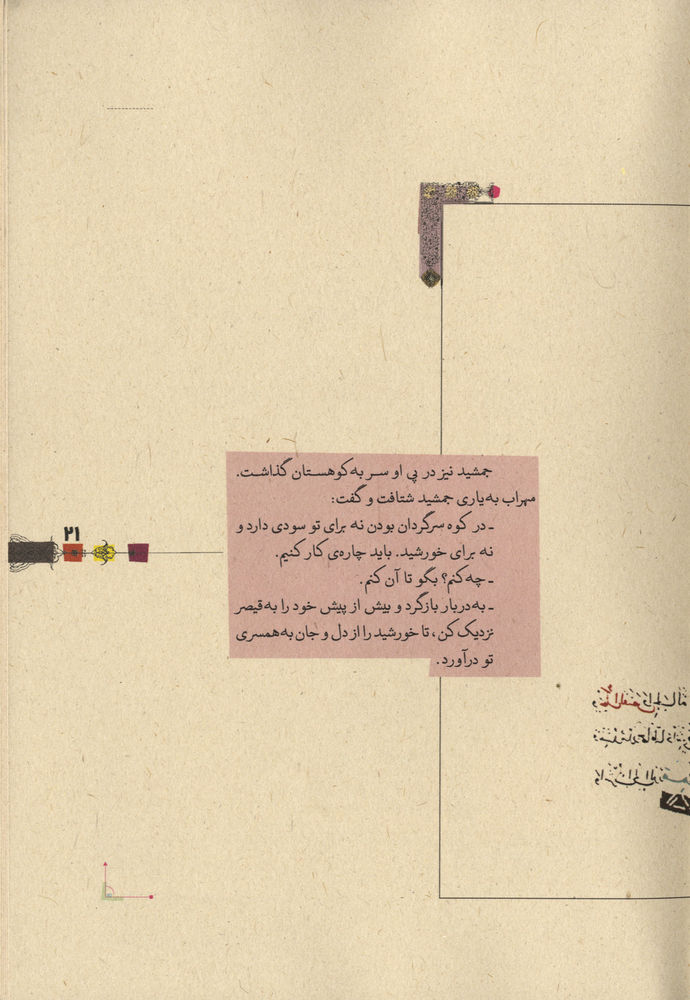 جمشید نیز در پی او سر به کوهستان گذاشت.
مهراب به‌یاری جمشید شتافت و گفت:
ـ در کوه سرگردان بودن نه برای تو سودی دارد و
نه برای خورشید. باید چاره‌ی کار کنیم.
ـ چه کنم؟ بگو تا آن کنم.
ـ به‌دربار بازگرد و بیش از پیش خود را به‌قیصر
نزدیک کن، تا خورشید را از دل و جان به‌همسری
تو درآورد.
۲۱